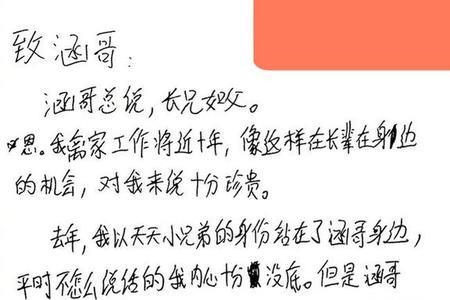 致涵哥：
涵哥总说，长兄如父。
恩。我离家工作将近十年，像这样在长辈在身边
的机会，对我来说十分珍贵。
去年，我以天天小兄弟的身份站在了涵哥身边，
平时不怎么说话的我内心十分没底。但是涵哥